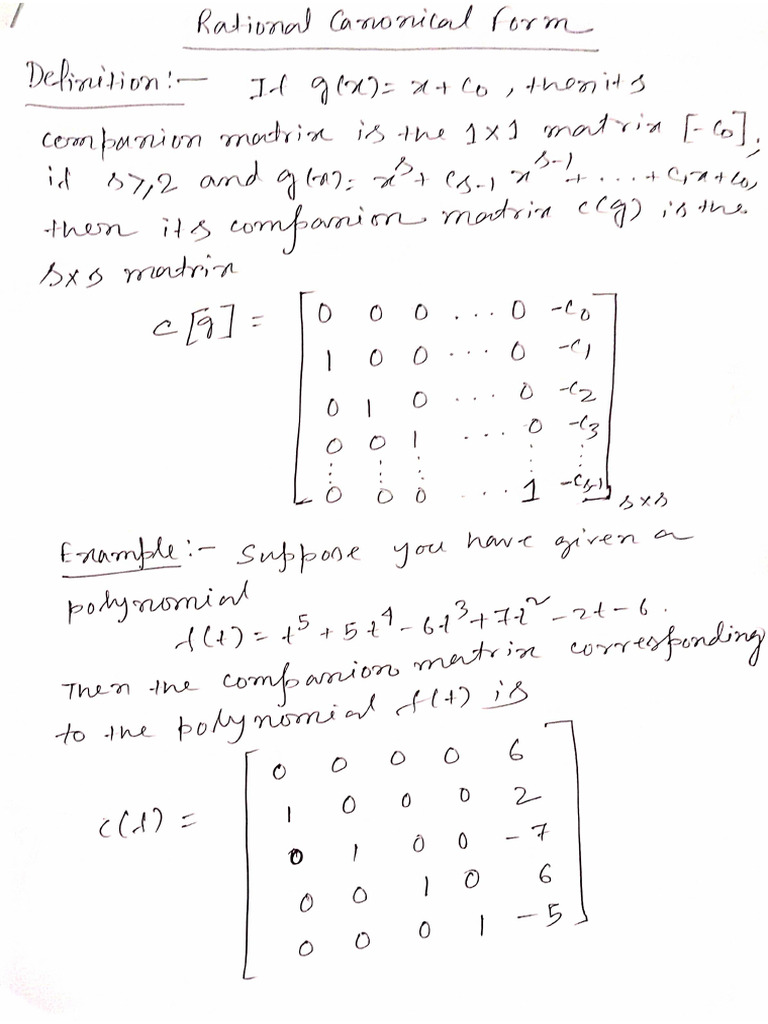 Rational Canonical Form
Definition:— If g(x)= x+c₀, then its
companion matrix is the 1×1 matrix [-c₀];
if s≥2 and g(x)= xˢ+cₛ₋₁xˢ⁻¹+...+c₁x+c₀,
then its companion matrix c(g) is the
s×s matrix
c[g] = [ 0 0 0 ... 0 -c₀
1 0 0 ... 0 -c₁
0 1 0 ... 0 -c₂
0 0 1 ... 0 -c₃
⋮ ⋮ ⋮ ⋮ ⋮
0 0 0 ... 1 -cₛ₋₁ ] s×s
Example:- Suppose you have given a
polynomial
f(t) = t⁵+5t⁴-6t³+7t²-2t-6.
Then the companion matrix corresponding
to the polynomial f(t) is
c(f) = [ 0 0 0 0 6
1 0 0 0 2
0 1 0 0 -7
0 0 1 0 6
0 0 0 1 -5 ]